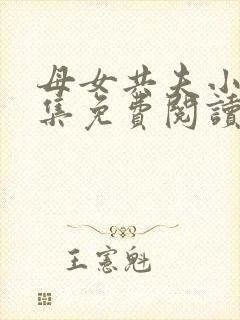 母女共夫小
集免費閱讀
王憲魁